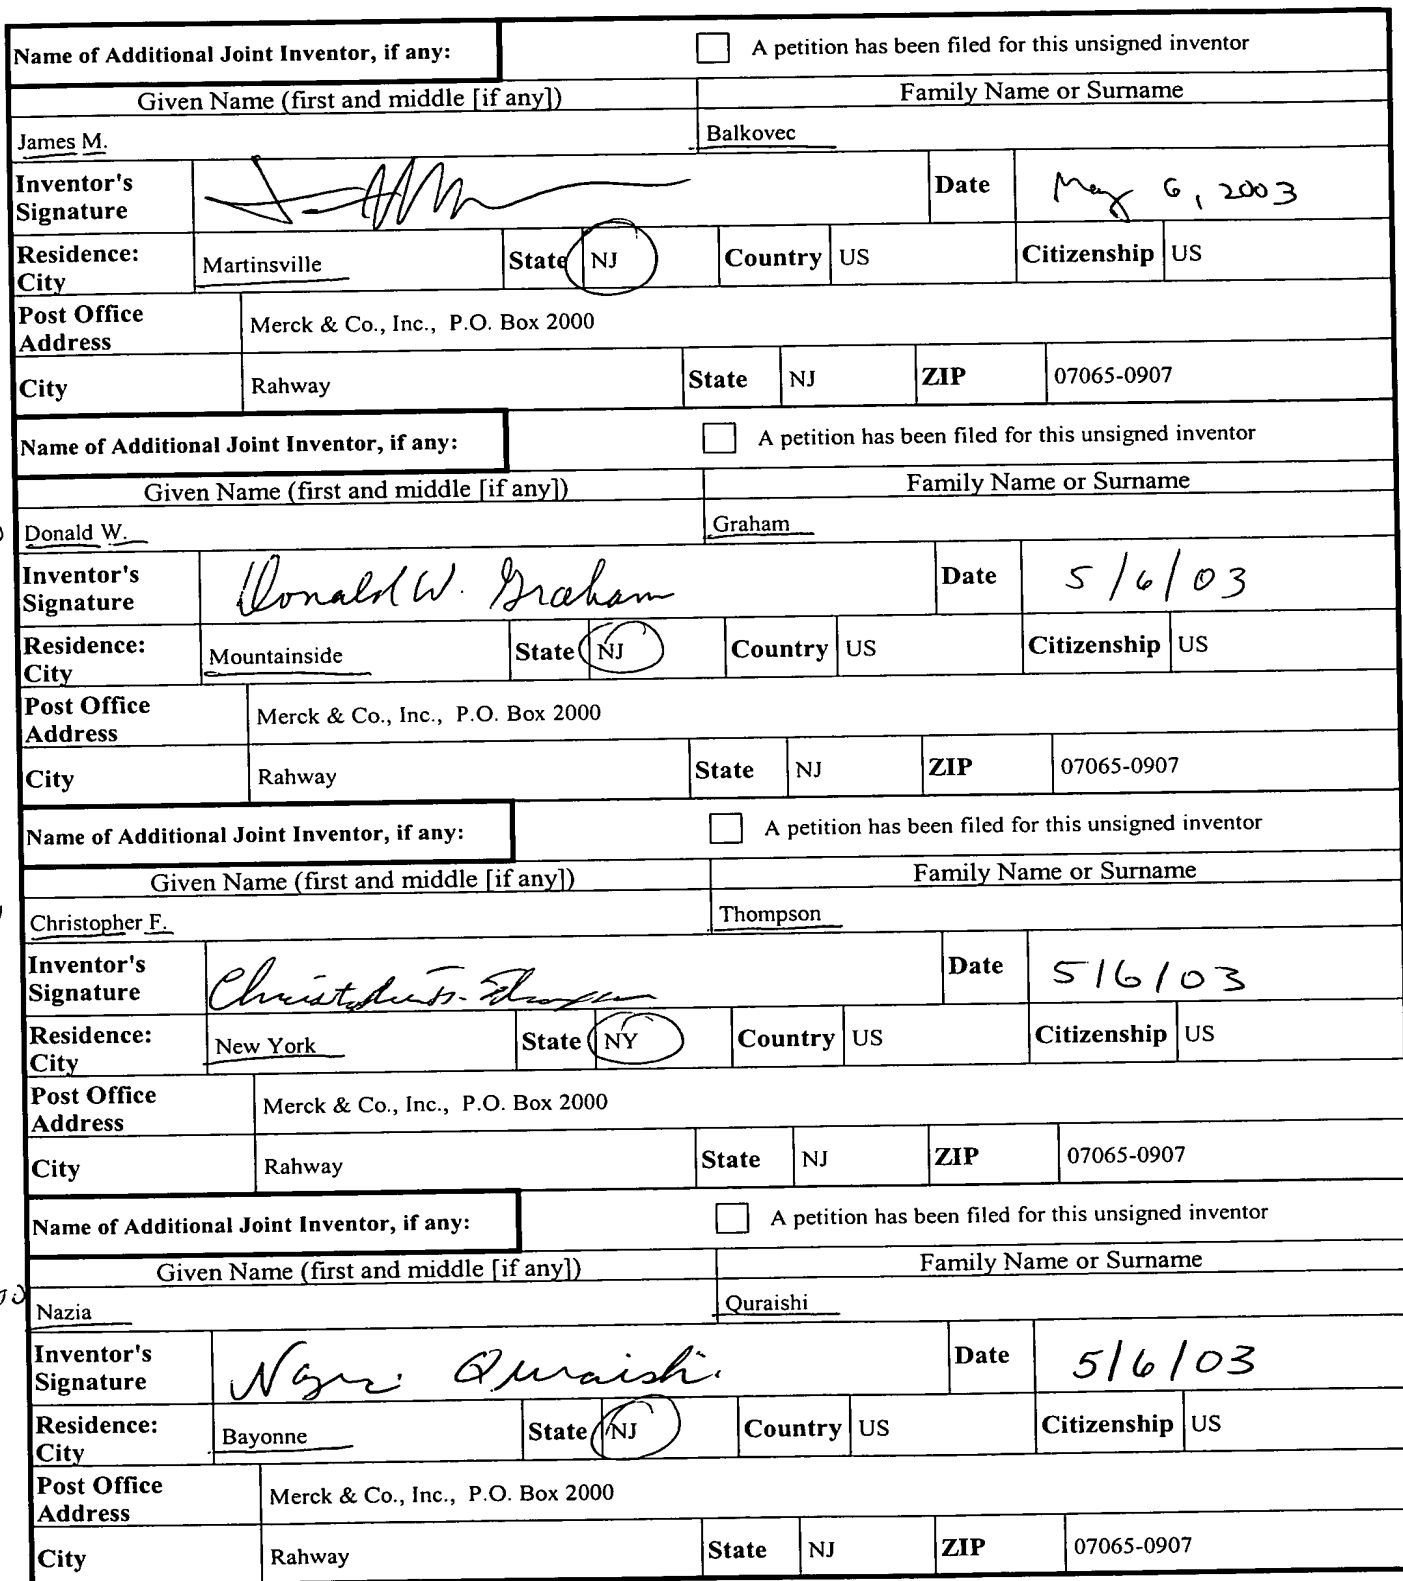 Name of Additional Joint Inventor, if any: A petition has been filed for this unsigned inventor
Given Name (first and middle [if any]) Family Name or Surname
James M. Balkovec
Inventor's Signature Date May 6, 2003
Residence: City Martinsville State NJ Country US Citizenship US
Post Office Address Merck & Co., Inc., P.O. Box 2000
City Rahway State NJ ZIP 07065-0907
Name of Additional Joint Inventor, if any: A petition has been filed for this unsigned inventor
Given Name (first and middle [if any]) Family Name or Surname
Donald W. Graham
Inventor's Signature Donald W. Graham Date 5/6/03
Residence: City Mountainside State NJ Country US Citizenship US
Post Office Address Merck & Co., Inc., P.O. Box 2000
City Rahway State NJ ZIP 07065-0907
Name of Additional Joint Inventor, if any: A petition has been filed for this unsigned inventor
Given Name (first and middle [if any]) Family Name or Surname
Christopher F. Thompson
Inventor's Signature Christopher F. Thompson Date 5/6/03
Residence: City New York State NY Country US Citizenship US
Post Office Address Merck & Co., Inc., P.O. Box 2000
City Rahway State NJ ZIP 07065-0907
Name of Additional Joint Inventor, if any: A petition has been filed for this unsigned inventor
Given Name (first and middle [if any]) Family Name or Surname
Nazia Quraishi
Inventor's Signature Nazia Quraishi Date 5/6/03
Residence: City Bayonne State NJ Country US Citizenship US
Post Office Address Merck & Co., Inc., P.O. Box 2000
City Rahway State NJ ZIP 07065-0907